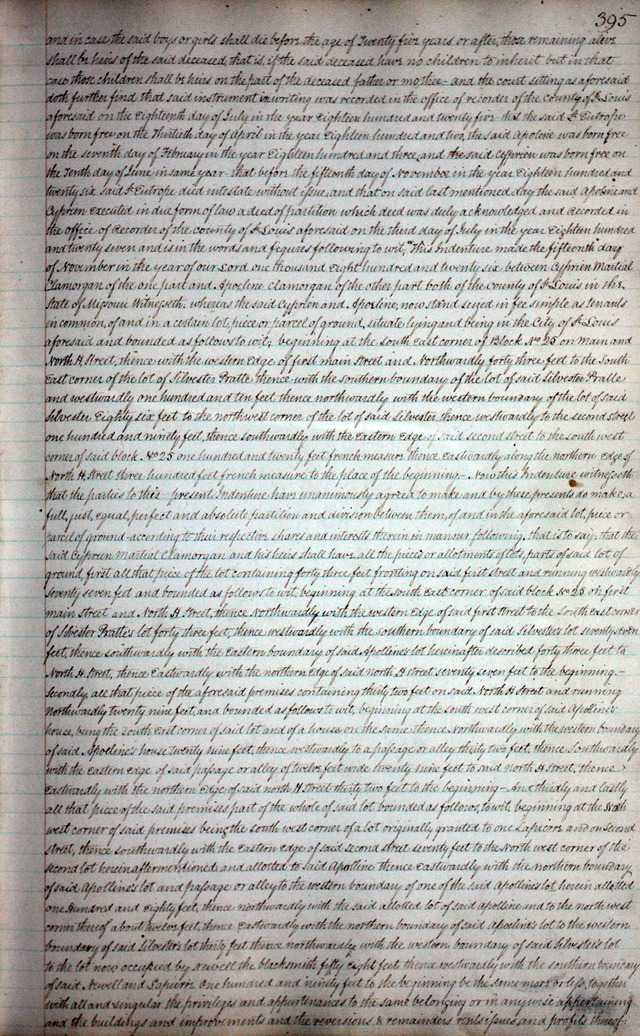 395
and in case the said boys or girls shall die before the age of Twenty five years or after, those remaining alive
shall be heirs of the said deceased, that is, if the said deceased have no children to inherit but in that
case those children shall be heirs on the part of the deceased father or mother — and the court sitting as aforesaid
doth further find that said instrument in writing was recorded in the office of recorder of the County of St Louis
aforesaid on the Eighteenth day of July in the year Eighteen hundred and twenty five — that the said St Eutrope
was born free on the thirtieth day of April in the year Eighteen hundred and two, the said Apoline was born free
on the seventh day of February in the year Eighteen hundred and three, and the said Cyprien was born free on
the Tenth day of June in same year — that before the fifteenth day of November in the year Eighteen hundred and
twenty six said St Eutrope died intestate without issue, and that on said last mentioned day the said Apoline and
Cyprien executed in due form of law a deed of partition which deed was duly acknowledged and recorded in
the office of Recorder of the county of St Louis aforesaid on the third day of July in the year Eighteen hundred
and twenty seven and is in the words and figures following to wit, "This Indenture made the fifteenth day
of November in the year of our Lord one thousand Eight hundred and twenty six between Cyprien Martial
Clamorgan of the one part and Apoline Clamorgan of the other part both of the county of St Louis in the
State of Missouri Witnesseth, whereas the said Cyprien and Apoline, now stand seized in fee simple as tenants
in common, of and in a certain lot, piece or parcel of ground, situate lying and being in the City of St Louis
aforesaid and bounded as follows to wit; beginning at the South East corner of Block No 25 on Main and
North H Street, thence with the western Edge of first main Street and Northwardly forty three feet to the South
East corner of the lot of Silvester Pratte thence with the Southern boundary of the lot of said Silvester Pratte
and westwardly one hundred and ten feet thence northwardly with the western boundary of the lot of said
Silvester Eighty six feet to the northwest corner of the lot of said Silvester, thence westwardly to the second street
one hundred and ninety feet, thence southwardly with the Eastern Edge of said second street to the south west
corner of said block No 25 one hundred and twenty feet french measure thence Eastwardly along the northern edge of
North H Street three hundred feet french measure to the place of the beginning — Now this Indenture witnesseth
that the parties to this present Indenture have unanimously agreed to make and by these presents do make, a
full, just, equal, perfect and absolute partition and division between them, of and in the aforesaid lot, piece or
parcel of ground according to their respective shares and interests therein in manner following, that is to say, that the
said Cyprien Martial Clamorgan and his heirs shall have all the pieces or allotments of lots, parts of said lot of
ground, first all that piece of the lot containing forty three feet fronting on said first street and running westwardly
seventy seven feet and bounded as follows to wit, beginning at the South East corner of said block No 25 on first
main street and North H Street, thence Northwardly with the western Edge of said first street to the South East corner
of Silvester Pratte's lot forty three feet, thence westwardly with the Southern boundary of said Silvester's lot seventy seven
feet, thence southwardly with the Eastern boundary of said Apolline's lot hereinafter described forty three feet to
North H Street, thence Eastwardly with the northern edge of said north H street seventy seven feet to the beginning. —
Secondly, all that piece of the aforesaid premises containing thirty two feet on said North H Street and running
northwardly twenty nine feet, and bounded as follows to wit, beginning at the south west corner of said Apolline's
house, being the south East corner of said lot and of a house on the same, thence Northwardly with the western boundary
of said Apoline's house twenty nine feet, thence westwardly to a passage or alley thirty two feet, thence Southwardly
with the Eastern Edge of said passage or alley of twelve feet wide twenty nine feet to said north H Street, thence
Eastwardly with the northern Edge of said north H Street thirty two feet to the beginning — And thirdly and lastly
all that piece of the said premises part of the whole of said lot bounded as follows, to wit, beginning at the North
west corner of said premises being the south west corner of a lot originally granted to one Lapierre and on Second
street, thence southwardly with the Eastern Edge of said second street seventy feet to the North west corner of the
second lot hereinafter mentioned and allotted to said Apolline thence Eastwardly with the northern boundary
of said Apolline's lot and passage or alley to the western boundary of one of the said Apolline's lot herein allotted
one Hundred and Eighty feet, thence northwardly with the said allotted lot of said Apolline and to the north west
corner thereof about twelve feet, thence Eastwardly with the northern boundary of said Apoline's lot to the western
boundary of said Silvester's lot thirty feet thence northwardly with the western boundary of said Silvester's lot
to the lot now occupied by Newell the blacksmith fifty Eight feet thence westwardly with the southern boundary
of said Newell and Lapierre One hundred and ninety feet to the beginning be the same more or less, together
with all and singular the privileges and appurtenances to the same belonging or in any wise appertaining
and the buildings and improvements and the reversions & remainders rents issues and profits thereof